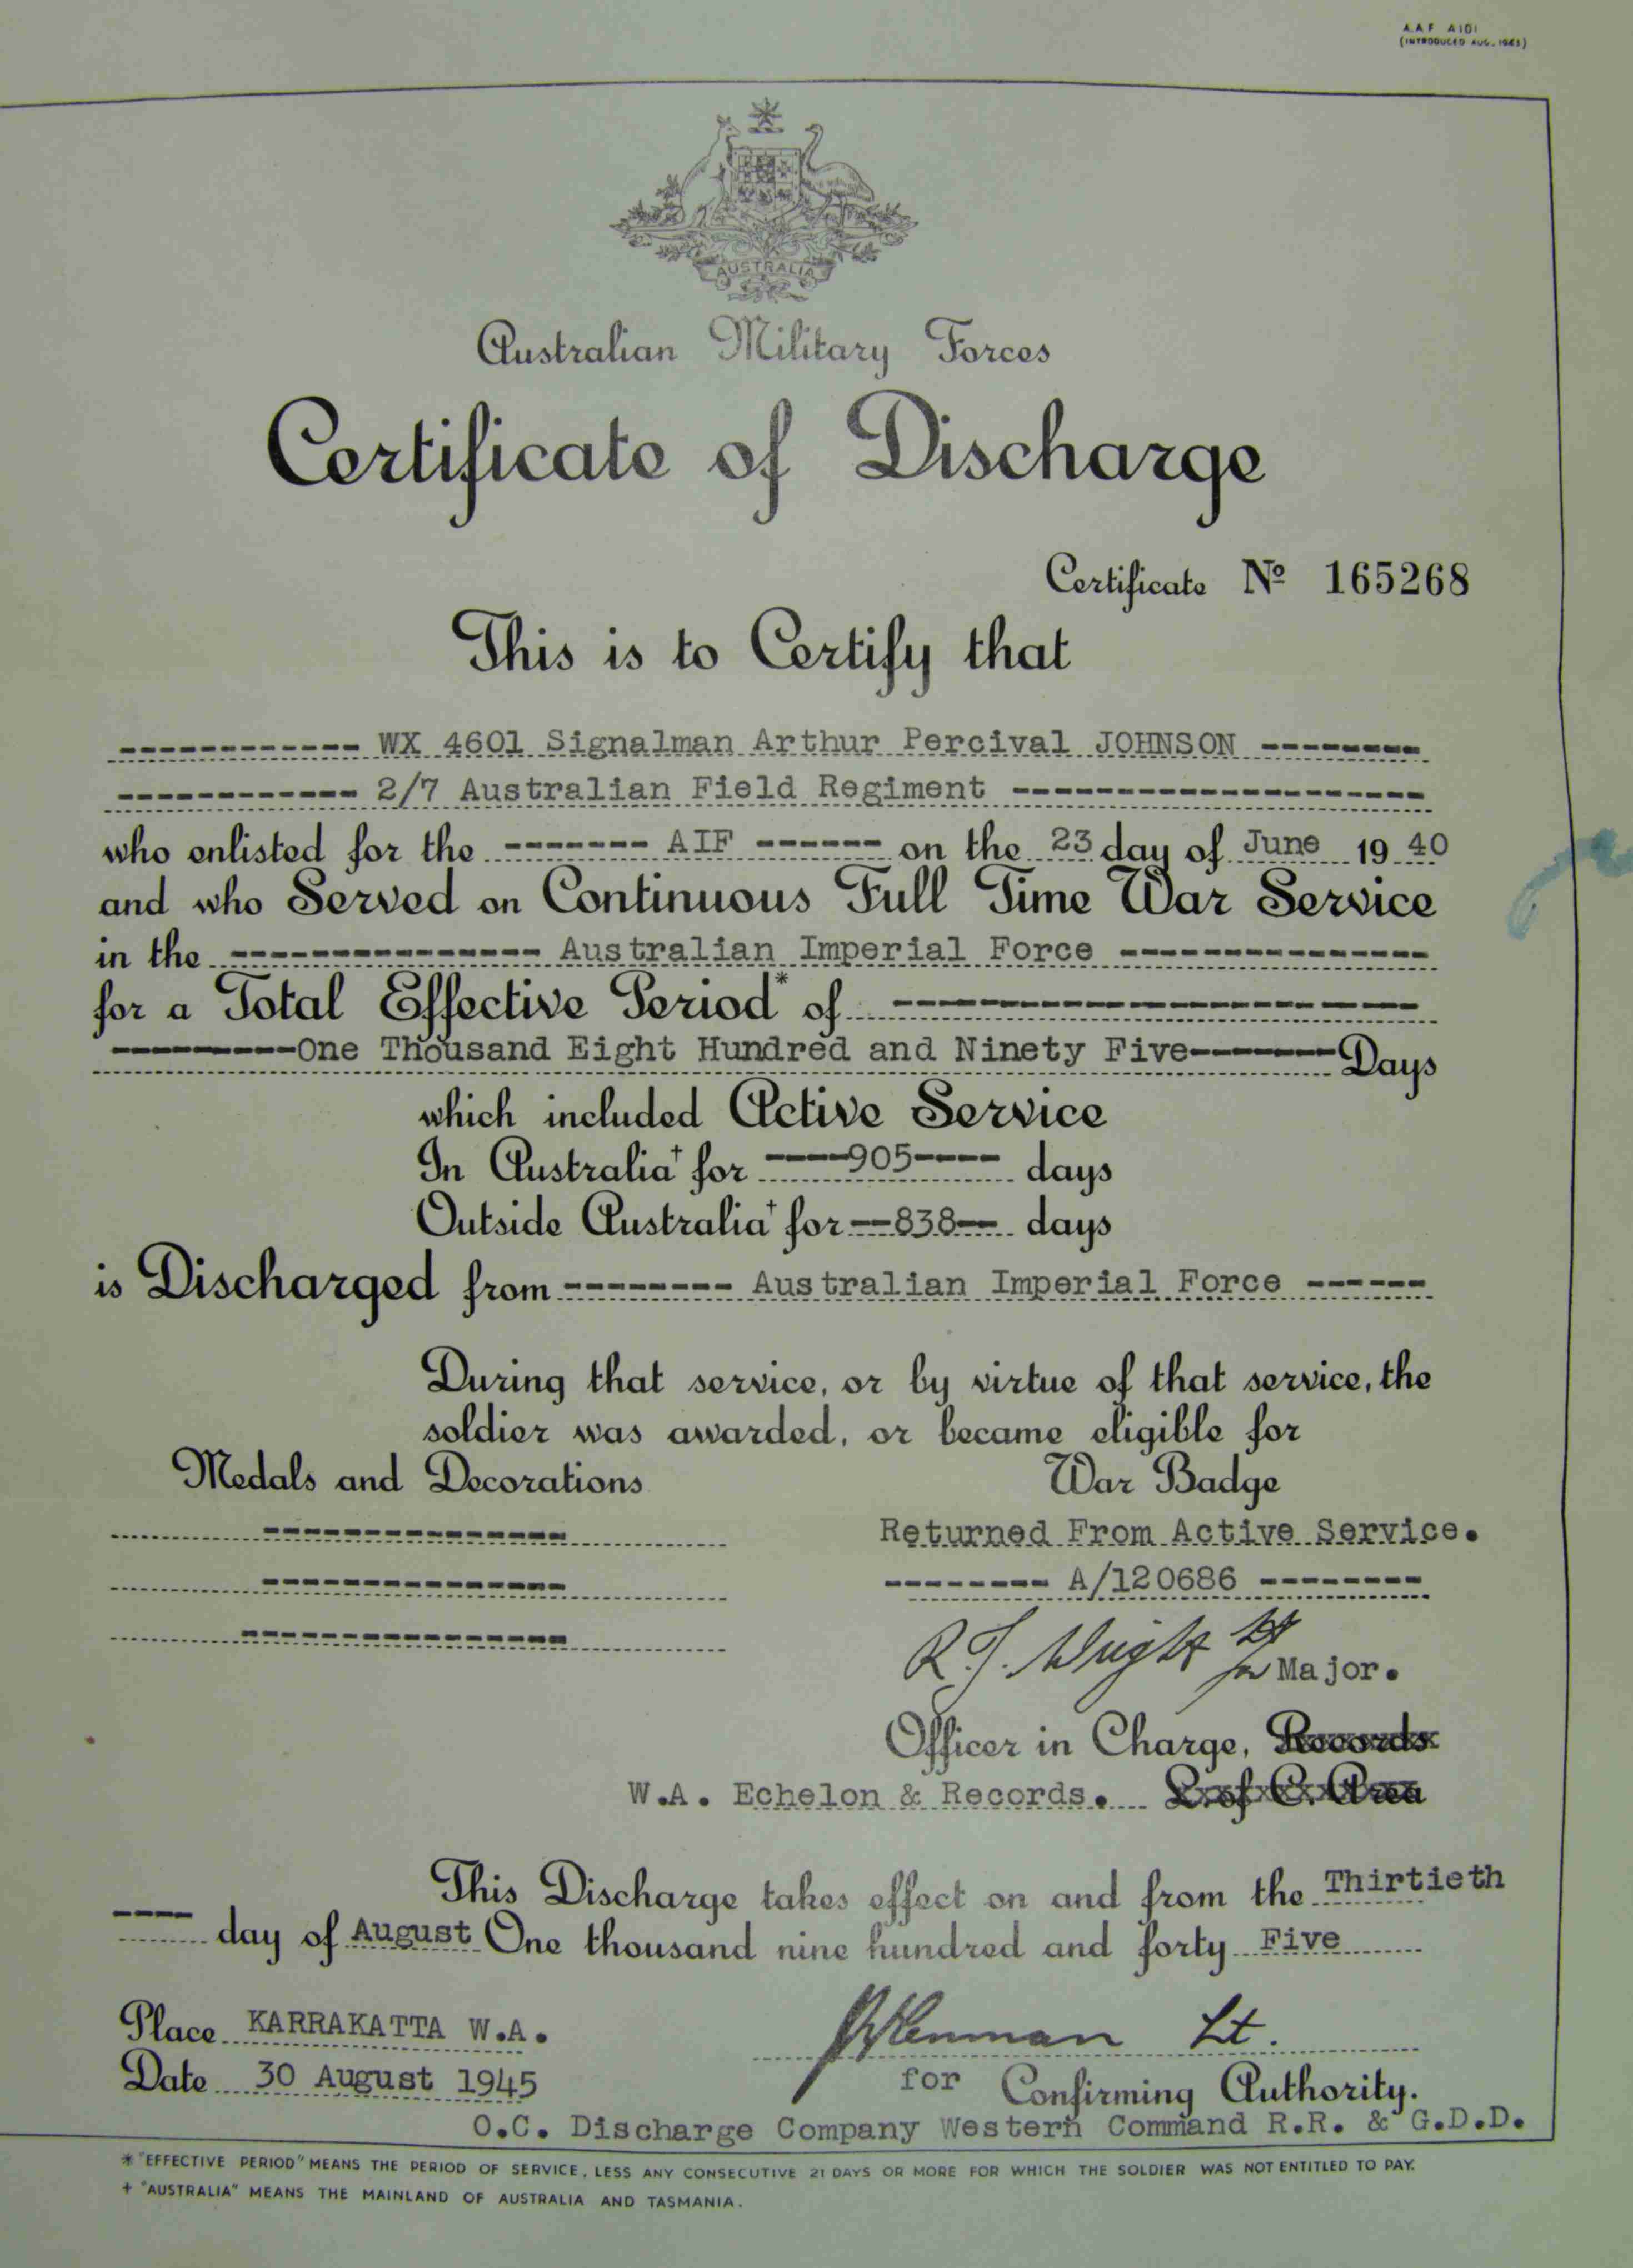 A.A.F. A101
(INTRODUCED AUG. 1943)
AUSTRALIA
Australian Military Forces
Certificate of Discharge
Certificate № 165268
This is to Certify that
------------ WX 4601 Signalman Arthur Percival JOHNSON ---------
------------ 2/7 Australian Field Regiment --------------------
who enlisted for the ------- AIF ------ on the 23 day of June 19 40
and who Served on Continuous Full Time War Service
in the --------------- Australian Imperial Force ---------------
for a Total Effective Period* of --------------------------
---------One Thousand Eight Hundred and Ninety Five------- Days
which included Active Service
In Australia+ for ----905---- days
Outside Australia+ for --838-- days
is Discharged from -------- Australian Imperial Force ------
During that service, or by virtue of that service, the
soldier was awarded, or became eligible for
Medals and Decorations War Badge
--------------- Returned From Active Service.
--------------- -------- A/120686 --------
----------------
R.J. Wright Lt for Major.
Officer in Charge, Records
W.A. Echelon & Records. L. of C. Area
This Discharge takes effect on and from the Thirtieth
---- day of August One thousand nine hundred and forty Five
Place KARRAKATTA W.A. Lt.
Date 30 August 1945 for Confirming Authority.
O.C. Discharge Company Western Command R.R. & G.D.D.
* "EFFECTIVE PERIOD" MEANS THE PERIOD OF SERVICE, LESS ANY CONSECUTIVE 21 DAYS OR MORE FOR WHICH THE SOLDIER WAS NOT ENTITLED TO PAY.
+ "AUSTRALIA" MEANS THE MAINLAND OF AUSTRALIA AND TASMANIA.